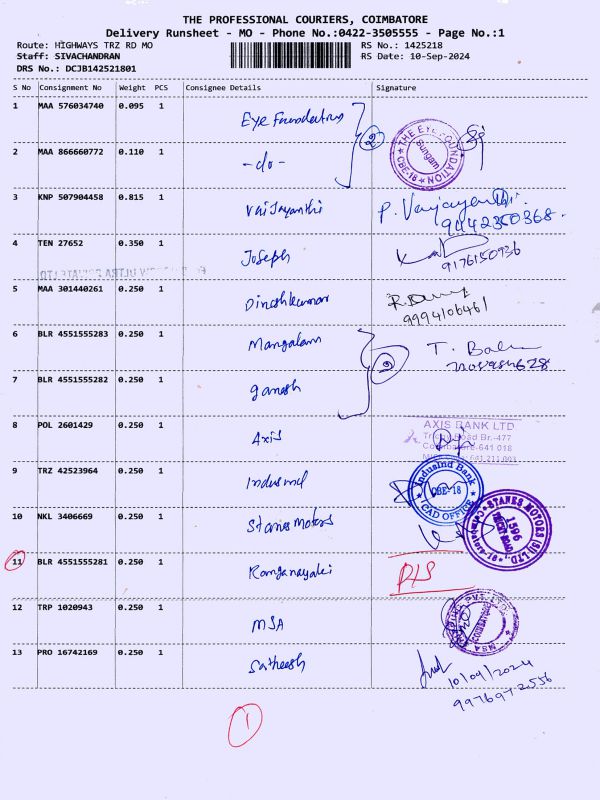 THE PROFESSIONAL COURIERS, COIMBATORE
Delivery Runsheet - MO - Phone No.:0422-3505555 - Page No.:1
Route: HIGHWAYS TRZ RD MO RS No.: 1425218
Staff: SIVACHANDRAN RS Date: 10-Sep-2024
DRS No.: DCJB142521801
S No Consignment No Weight PCS Consignee Details Signature
1 MAA 576034740 0.095 1 Eye Foundation
2
THE EYE FOUNDATION
Sungam
CBE-18
2 MAA 866660772 0.110 1 -do-
3 KNP 507904458 0.815 1 Vaijayanthi P. Vaijayanthi
9442350368
4 TEN 27652 0.350 1 Joseph
9176150936
5 MAA 301440261 0.250 1 Dineshkumar
9994106461
6 BLR 4551555283 0.250 1 Mangalam
2
7 BLR 4551555282 0.250 1 ganesh
8 POL 2601429 0.250 1 Axis
AXIS BANK LTD
Trichy Road Br.-477
Coimbatore-641 018
9 TRZ 42523964 0.250 1 Indusind
IndusInd Bank
CBE-18
CAD OFFICE
10 NKL 3406669 0.250 1 Stanes Motors
STANES MOTORS (SI) LTD.
1596
TRICHY ROAD,
Coimbatore-18
11 BLR 4551555281 0.250 1 Ranganayaki
12 TRP 1020943 0.250 1 MSA
13 PRO 16742169 0.250 1 Satheesh
10/09/2024
9976972556
1